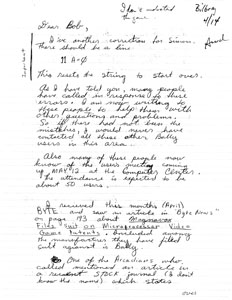 I have indicated
Dear Bob,
4/14
I've another correction for Simon.
There should be a line
11 A=0
This resets the string to start over.
As I have told you, many people
have called in response to these
errors. I am now writing to
these people to help them with
other questions and problems.
So if there had not been the
mistakes, I would never have
contacted all these other Bally
users in this area.
Also many of these people now
know of the users meeting coming
up MAY 12 at the Computer Center.
The attendance is expected to be
about 50 users.
I received this months (April)
BYTE and saw an article in "Byte News"
on page 193 about Magnavox
Files Suit on Microprocessor Video
Game Patents. Included among
the manufacturers they have filed
suit against is Bally.
One of the Arcadians who
called mentioned an article in
a stock journal (I don't
know the name) which states